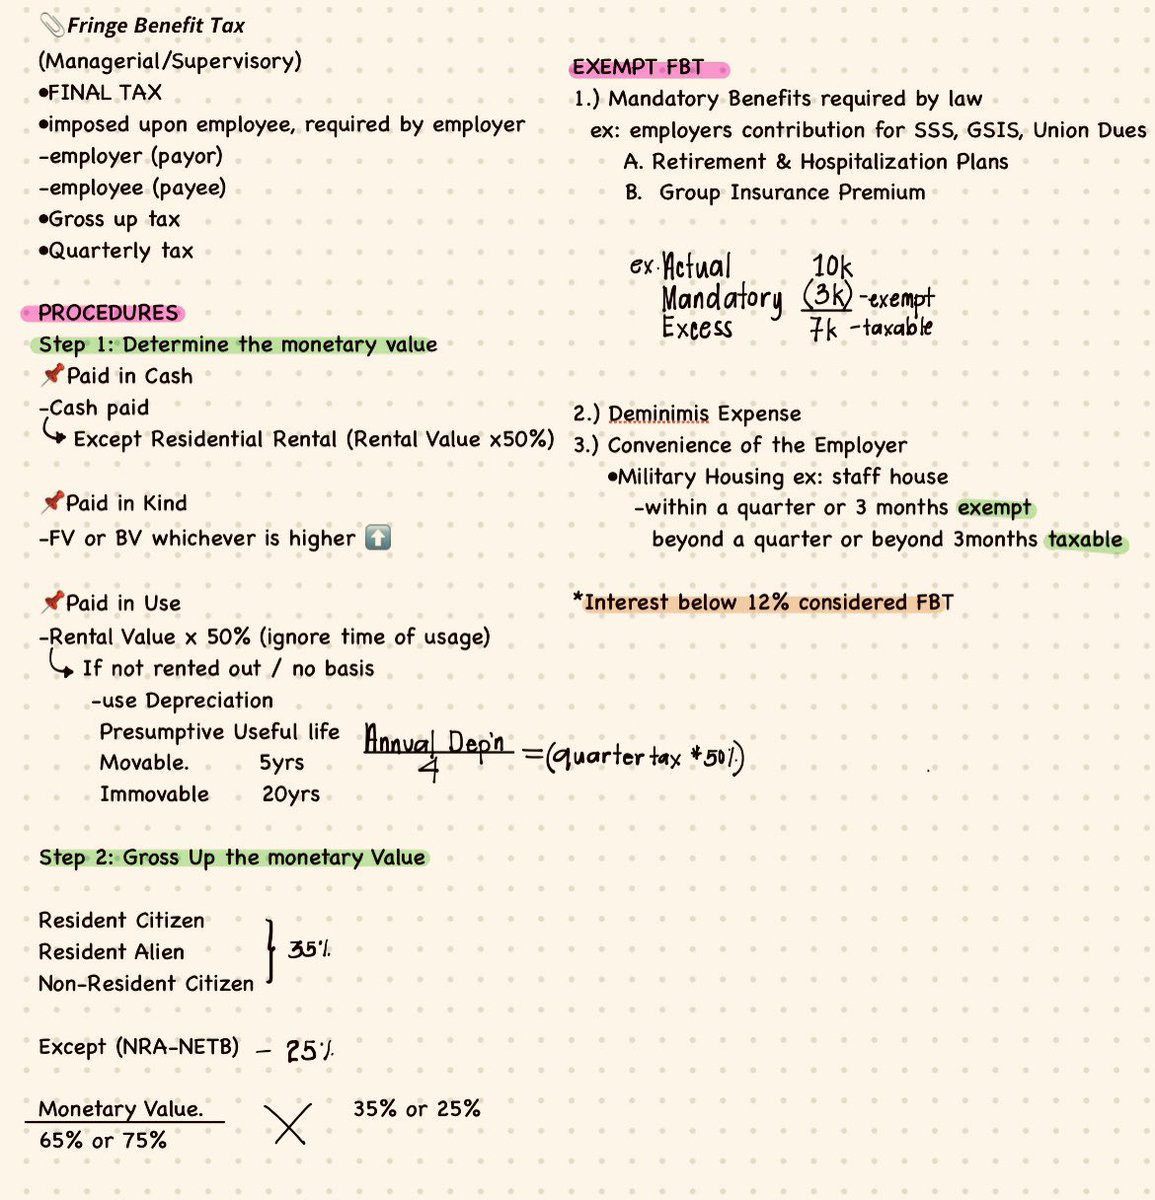 Fringe Benefit Tax
(Managerial/Supervisory)
•FINAL TAX
•imposed upon employee, required by employer
-employer (payor)
-employee (payee)
•Gross up tax
•Quarterly tax
PROCEDURES
Step 1: Determine the monetary value
Paid in Cash
-Cash paid
Except Residential Rental (Rental Value x50%)
Paid in Kind
-FV or BV whichever is higher
Paid in Use
-Rental Value x 50% (ignore time of usage)
If not rented out / no basis
-use Depreciation
Presumptive Useful life
Movable. 5yrs
Immovable 20yrs
Annual Dep'n
4
=(quarter tax *50%)
Step 2: Gross Up the monetary Value
Resident Citizen
Resident Alien
Non-Resident Citizen
35%
Except (NRA-NETB) - 25%
Monetary Value.
65% or 75%
X 35% or 25%
EXEMPT FBT
1.) Mandatory Benefits required by law
ex: employers contribution for SSS, GSIS, Union Dues
A. Retirement & Hospitalization Plans
B. Group Insurance Premium
ex. Actual 10k
Mandatory (3k) -exempt
Excess 7k -taxable
2.) Deminimis Expense
3.) Convenience of the Employer
•Military Housing ex: staff house
-within a quarter or 3 months exempt
beyond a quarter or beyond 3months taxable
*Interest below 12% considered FBT